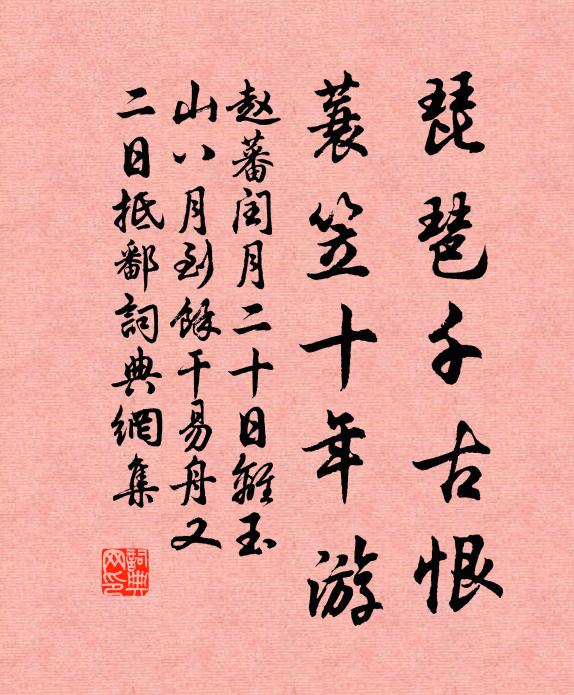 琵琶千古恨
蓑笠十年游
赵蕃闰月二十日離玉
山八月到餘干易舟又
二日抵鄱詞典網集
詞典网印